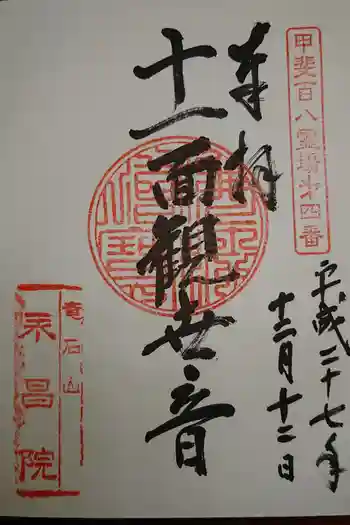 甲斐百八霊場第四番
奉拝
平成二十七年
十二月十二日
十一面観世音
竜石山
永昌院